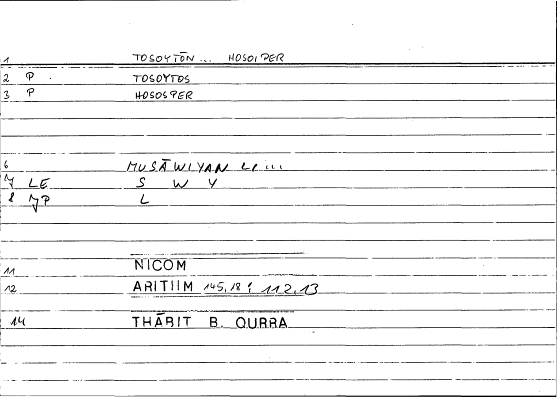 1 TOSOYTŌN ... HOSOIPER
2 P . TOSOYTOS
3 P HOSOSPER
6 MUSĀWIYAN LI ...
7 LE S W Y
8 JP L
11 NICOM
12 ARITIIM 145,18 : 112,13
14 THĀBIT B. QURRA